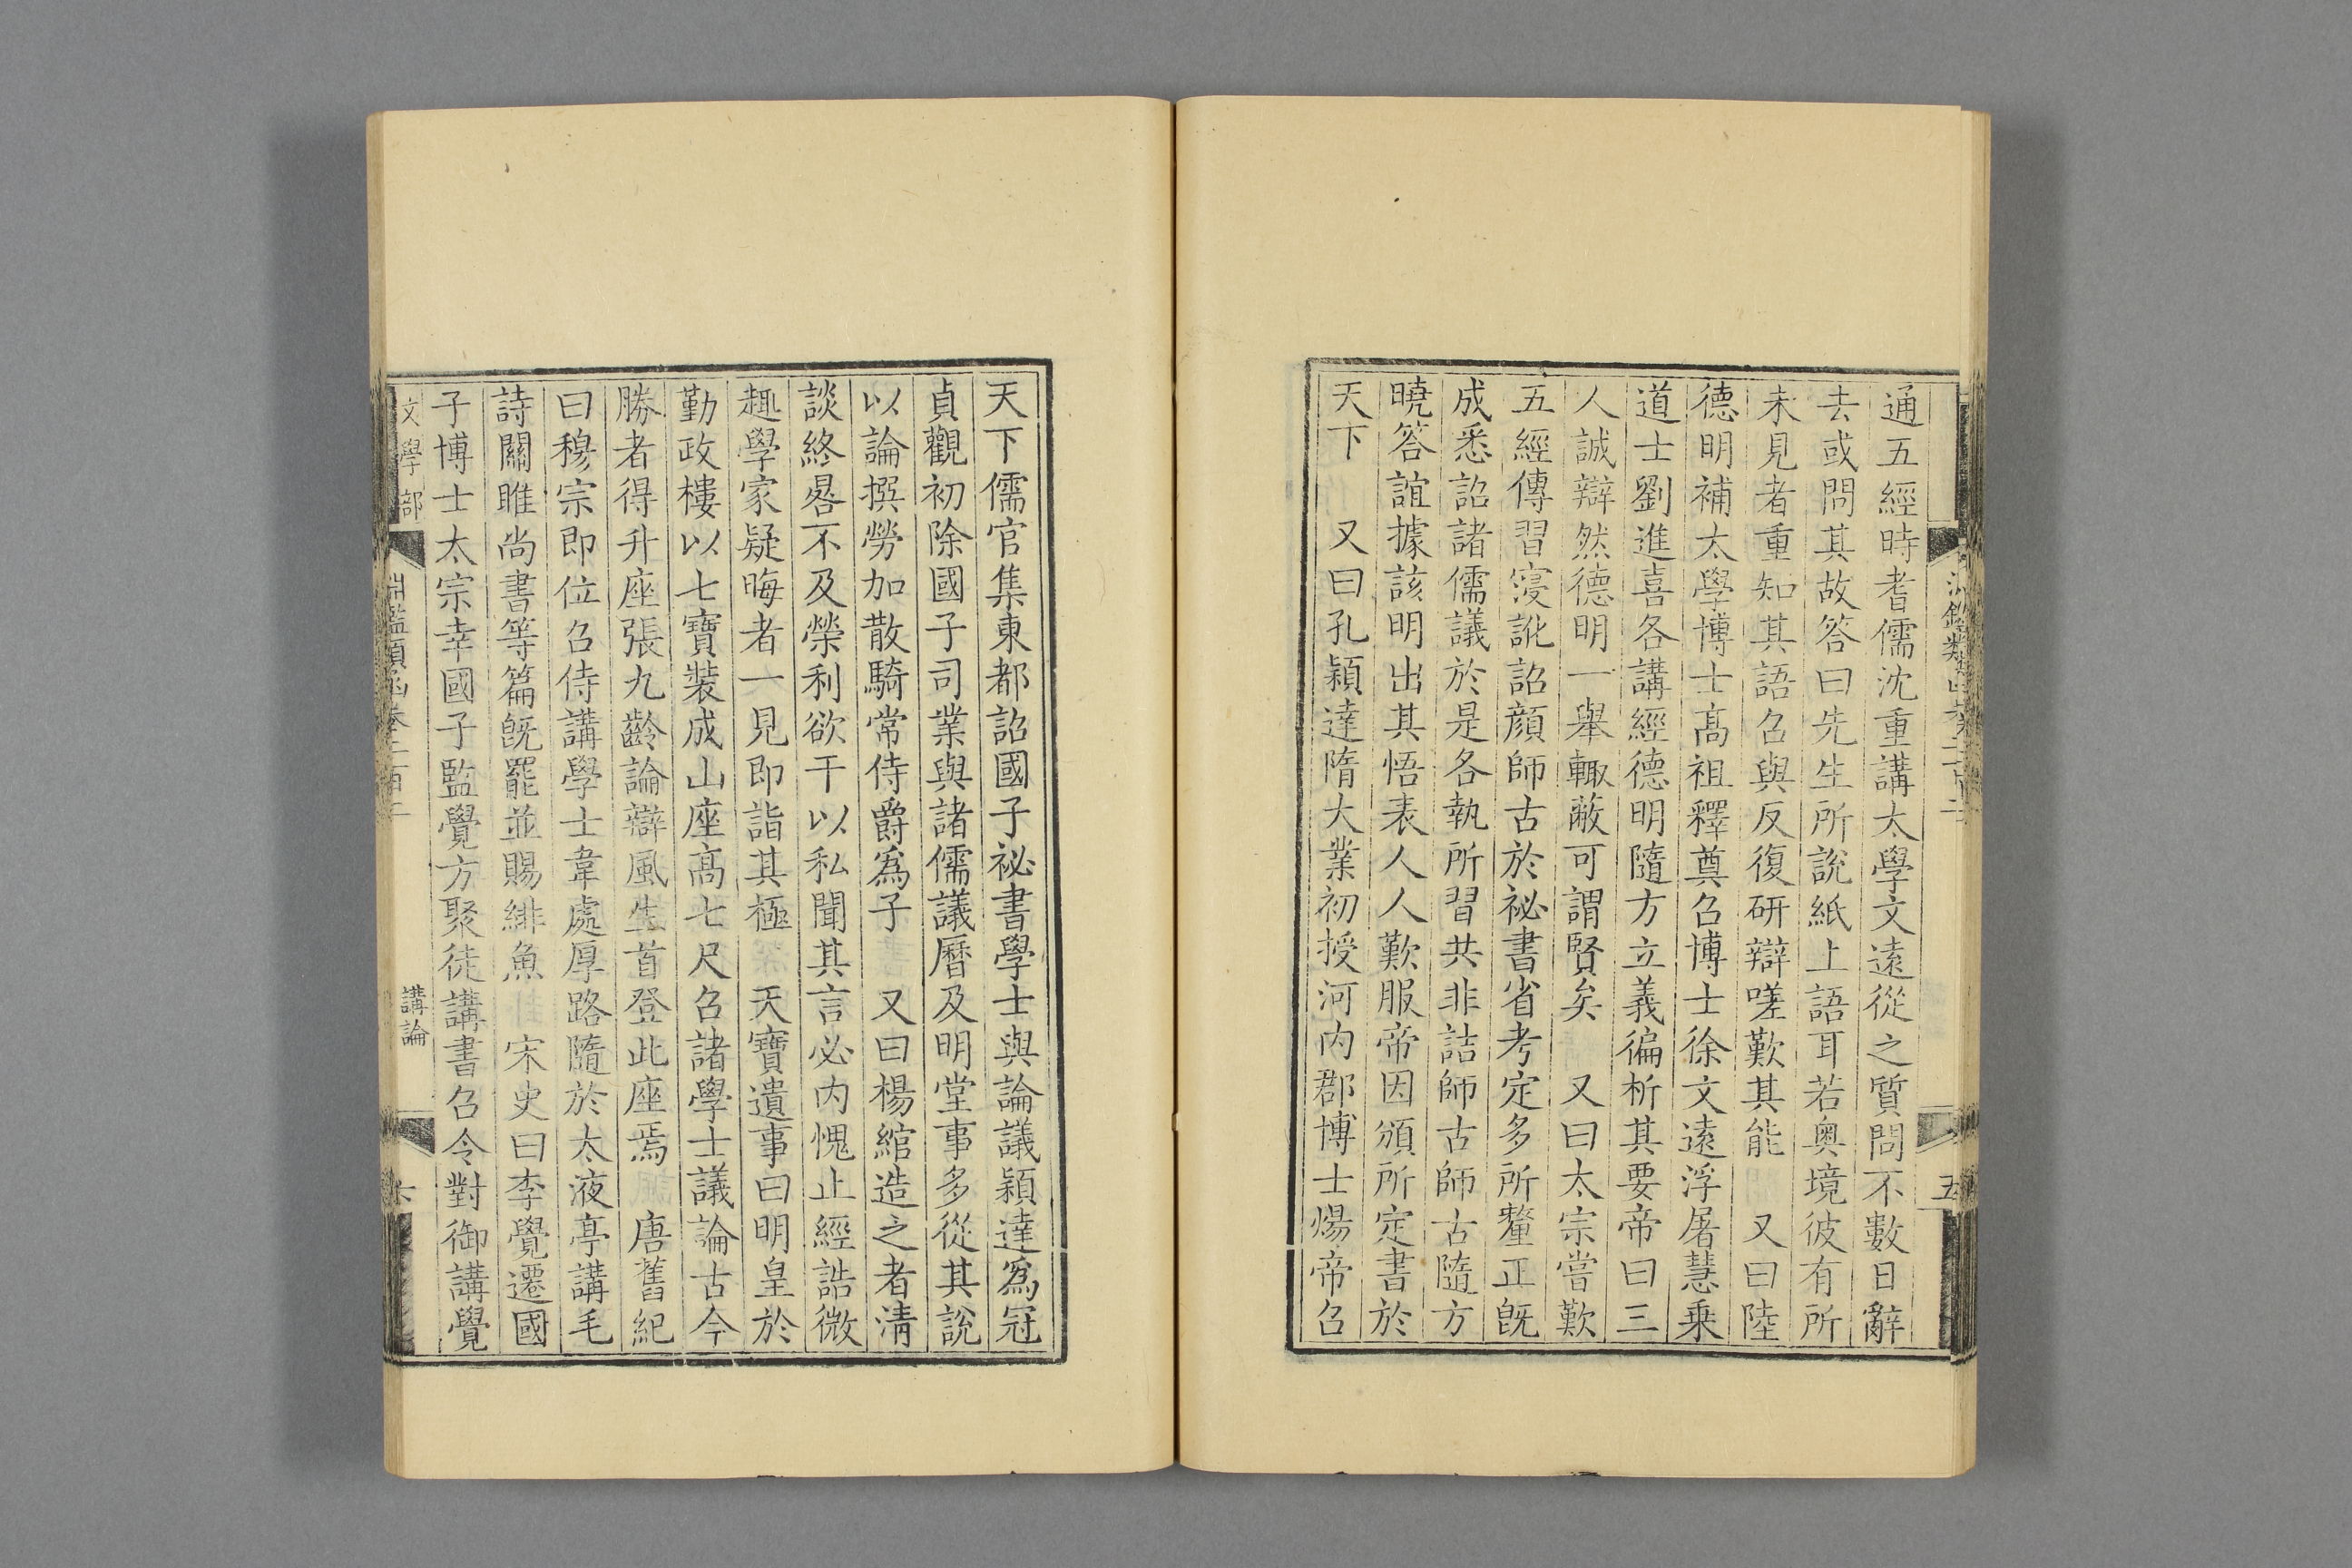 通五經時耆儒沈重講太學文遠從之質問不數日辭
去或問其故答曰先生所說紙上語耳若奥境彼有所
未見者重知其語召與反復研辯嗟歎其能　又曰陸
德明補太學博士高祖釋奠召博士徐文遠浮屠慧乗
道士劉進喜各講經德明隨方立義徧析其要帝曰三
人誠辯然德明一舉輙蔽可謂賢矣　又曰太宗嘗歎
五經傳習寖訛詔顔師古於祕書省考定多所釐正旣
成悉詔諸儒議於是各執所習共非詰師古師古隨方
曉答誼據該明出其悟表人人歎服帝因頒所定書於
天下　又曰孔穎達隋大業初授河内郡博士煬帝召
五
天下儒官集東都詔國子祕書學士與論議穎達爲冠
貞觀初除國子司業與諸儒議曆及明堂事多從其說
以論撰勞加散騎常侍爵爲子　又曰楊綰造之者清
談終晷不及榮利欲干以私聞其言必内愧止經誥微
趣學家疑晦者一見即詣其極　天寶遺事曰明皇於
勤政樓以七寶裝成山座高七尺召諸學士議論古今
勝者得升座張九齡論辯風生首登此座焉　唐舊紀
曰穆宗即位召侍講學士韋處厚路隨於太液亭講毛
詩關雎尚書等篇旣罷並賜緋魚　宋史曰李覺遷國
子博士太宗幸國子監覺方聚徒講書召令對御講覺
文學部
淵鑑類函卷二百二
講論
六